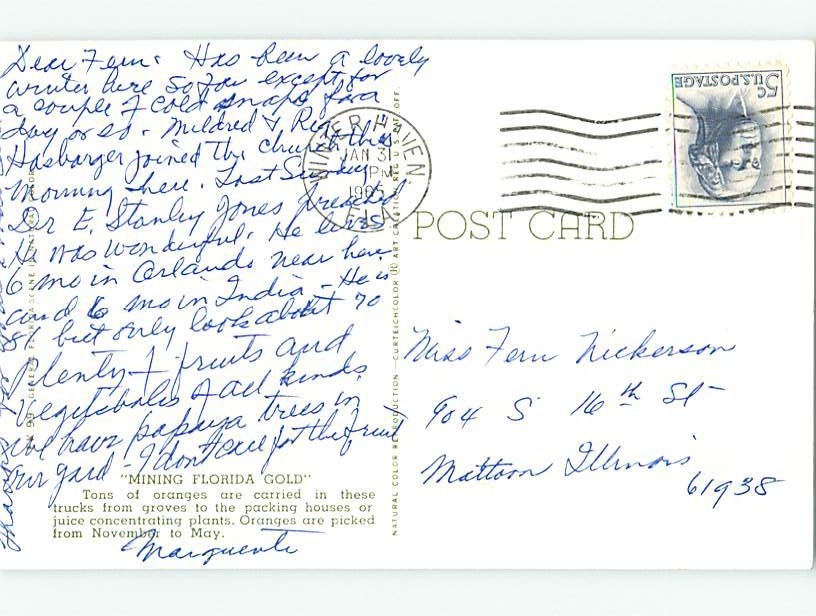 Dear Fern: Has been a lovely
winter here so far except for
a couple of cold snaps for a
day or so. Mildred & Ray
Hasbarger joined the church this
morning here. Last Sunday
Dr E. Stanley Jones preached
He was wonderful. He lives
6 mo in Orlando near here
and 6 mo in India - He is
81 but only looks about 70
Plenty of fruits and
vegetables of all kinds.
we have papaya trees in
our yard - I don't care for the fruit
Marguerite
"MINING FLORIDA GOLD"
Tons of oranges are carried in these
trucks from groves to the packing houses or
juice concentrating plants. Oranges are picked
from November to May.
NATURAL COLOR REPRODUCTION - CURTEICHCOLOR ® ART CREATION REG. U.S. PAT. OFF.
WINTER HAVEN,
JAN 31
PM
1965
FLA.
5¢
U.S. POSTAGE
POST CARD
Miss Fern Nickerson
904 S 16th St
Mattoon Illinois
61938